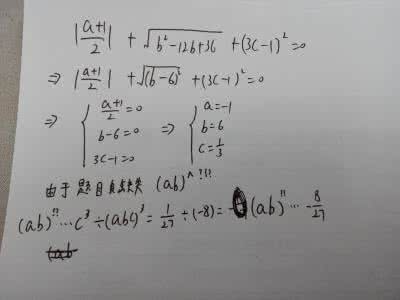 |a+1/2| + √(b²-12b+36) + (3c-1)² = 0
⇒ |a+1/2| + √(b-6)² + (3c-1)² = 0
⇒ { a+1/2 = 0 ⇒ { a=-1
b-6=0 b=6
3c-1=0 c=1/3
由于题目真缺失 (ab)^?!!
(ab)!!...c³÷(abc)³ = 1/27 ÷(-8) = - (ab)!!... -8/27
(ab